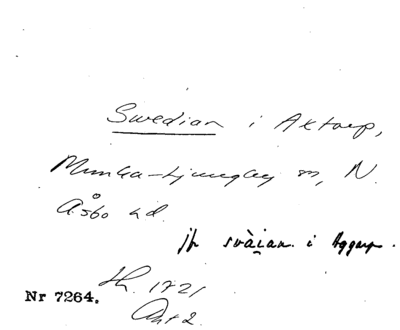 Swedian i Axtorp,
Munka-Ljungby sn, N.
Åsbo hd.
jfr svàian i Aggarp.
Th. 1721
Nr 7264.
Ant 2.